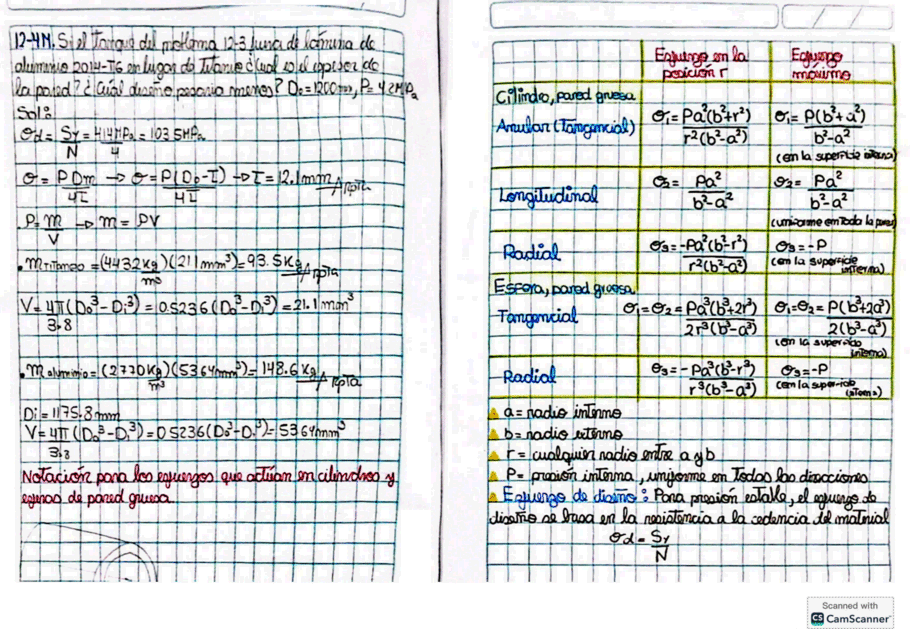 12-4M. Si el Tanque del problema 12-3 fuera de lámina de
aluminio 2014-T6 en lugar de Titanio ¿Cuál es el espesor de
la pared? ¿Cuál diseño pesaría menos? Do=1200mm, P=4.2MPa
Sol:
σd = Sy/N = 414MPa/4 = 103.5MPa
σ = PDm/4t → σ = P(Do-t)/4t → t = 12.1mm // rpta
P = m/V → m = PV
• m titanio = (4432 kg/m³)(21.1mm³) = 93.5Kg // rpta
V = 4π/3.8 (Do³-Di³) = 0.5236(Do³-Di³) = 21.1mm³
• m aluminio = (2770 kg/m³)(5364mm³) = 148.6Kg // rpta
Di = 1175.8mm
V = 4π/3.8 (Do³-Di³) = 0.5236(Do³-Di³) = 5364mm³
Notación para los esfuerzos que actúan en cilindros y
esferas de pared gruesa.
Esfuerzo en la posición r
Esfuerzo máximo
Cilindro, pared gruesa
Anular (Tangencial) σ₁ = Pa²(b²+r²)/r²(b²-a²) σ₁ = P(b²+a²)/b²-a²
(en la superficie interna)
Longitudinal σ₂ = Pa²/b²-a² σ₂ = Pa²/b²-a²
(uniforme en toda la pared)
Radial σ₃ = -Pa²(b²-r²)/r²(b²-a²) σ₃ = -P
(en la superficie interna)
Esfera, pared gruesa
Tangencial σ₁=σ₂ = Pa³(b³+2r³)/2r³(b³-a³) σ₁=σ₂ = P(b³+2a³)/2(b³-a³)
(en la superficie interna)
Radial σ₃ = -Pa³(b³-r³)/r³(b³-a³) σ₃ = -P
(en la superficie
a = radio interno
b = radio externo
r = cualquier radio entre a y b
P = presión interna, uniforme en Todas las direcciones
Esfuerzo de diseño: Para presión estable, el esfuerzo de
diseño se basa en la resistencia a la cedencia del material
σd = Sy/N
Scanned with
CS CamScanner